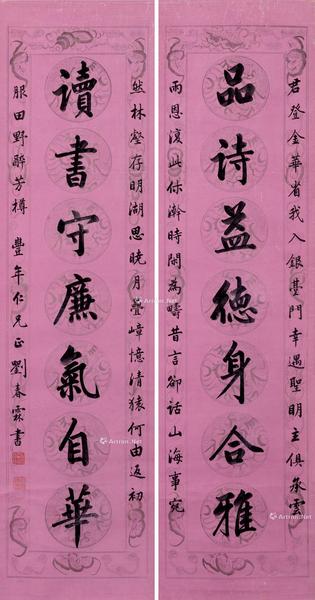 君登金華省我入銀臺門幸遇聖明主俱承雲
品诗益德身合雅
雨恩復此休澣時閑為疇昔言卻話山海事宛
然林壑存明湖思曉月疊嶂憶清猿何由返初
讀書守廉氣自華
服田野醉芳樽 豐年仁兄正 劉春霖書